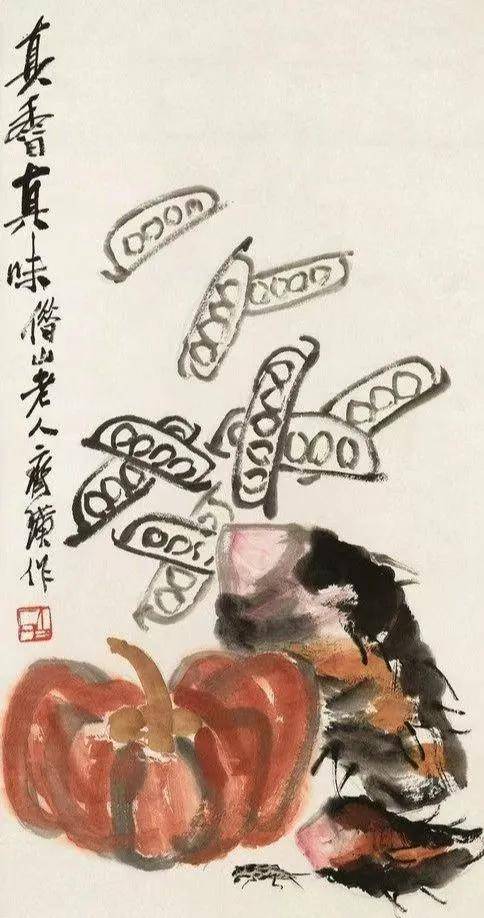 真香真味借山老人齊璜作